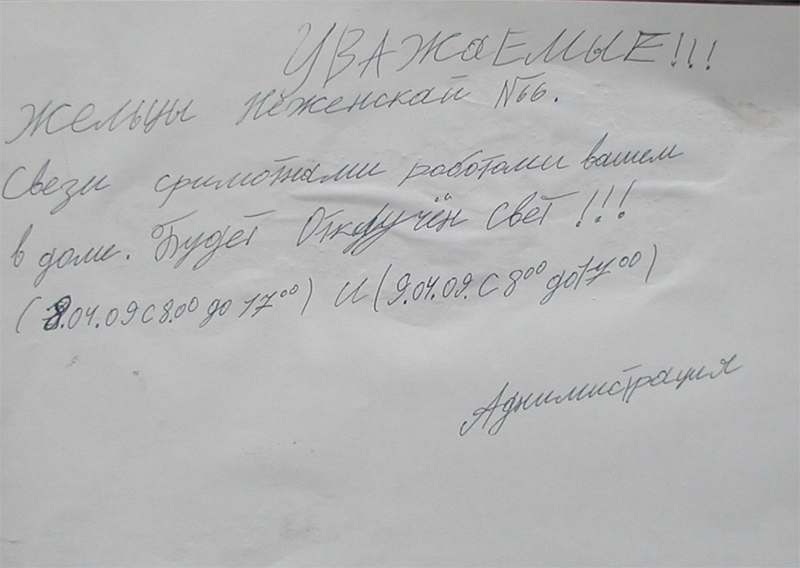 УВАЖаЕМЫЕ!!!
Жельцы Неженской №66.
Свези сримотнами роботами вашем
в доме. Будет Отключён Свет!!!
(8.04.09 с 8.00 до 17⁰⁰) И (9.04.09. с 8⁰⁰ до 17⁰⁰)
Аднимистрация